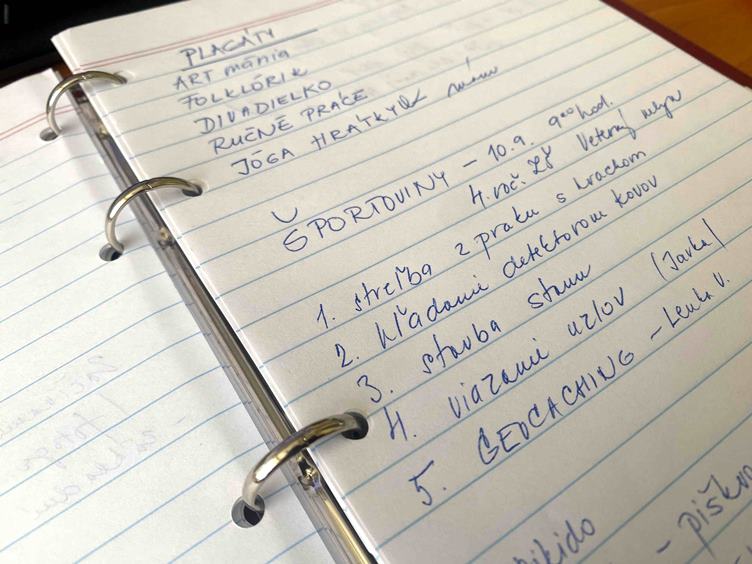 PLAGÁTY
ART mánia
FOLKLÓRIK
DIVADIELKO
RUČNÉ PRÁCE
JÓGA HRÁTKY
ŠPORTOVINY – 10.9. 9⁰⁰ hod.
4. roč. ZŠ Veterný mlyn
1. streľba z praku s hrachom
2. hľadanie detektorom kovov
3. stavba stanu
4. viazanie uzlov (Javka)
5. GEOCACHING – Lenka V.